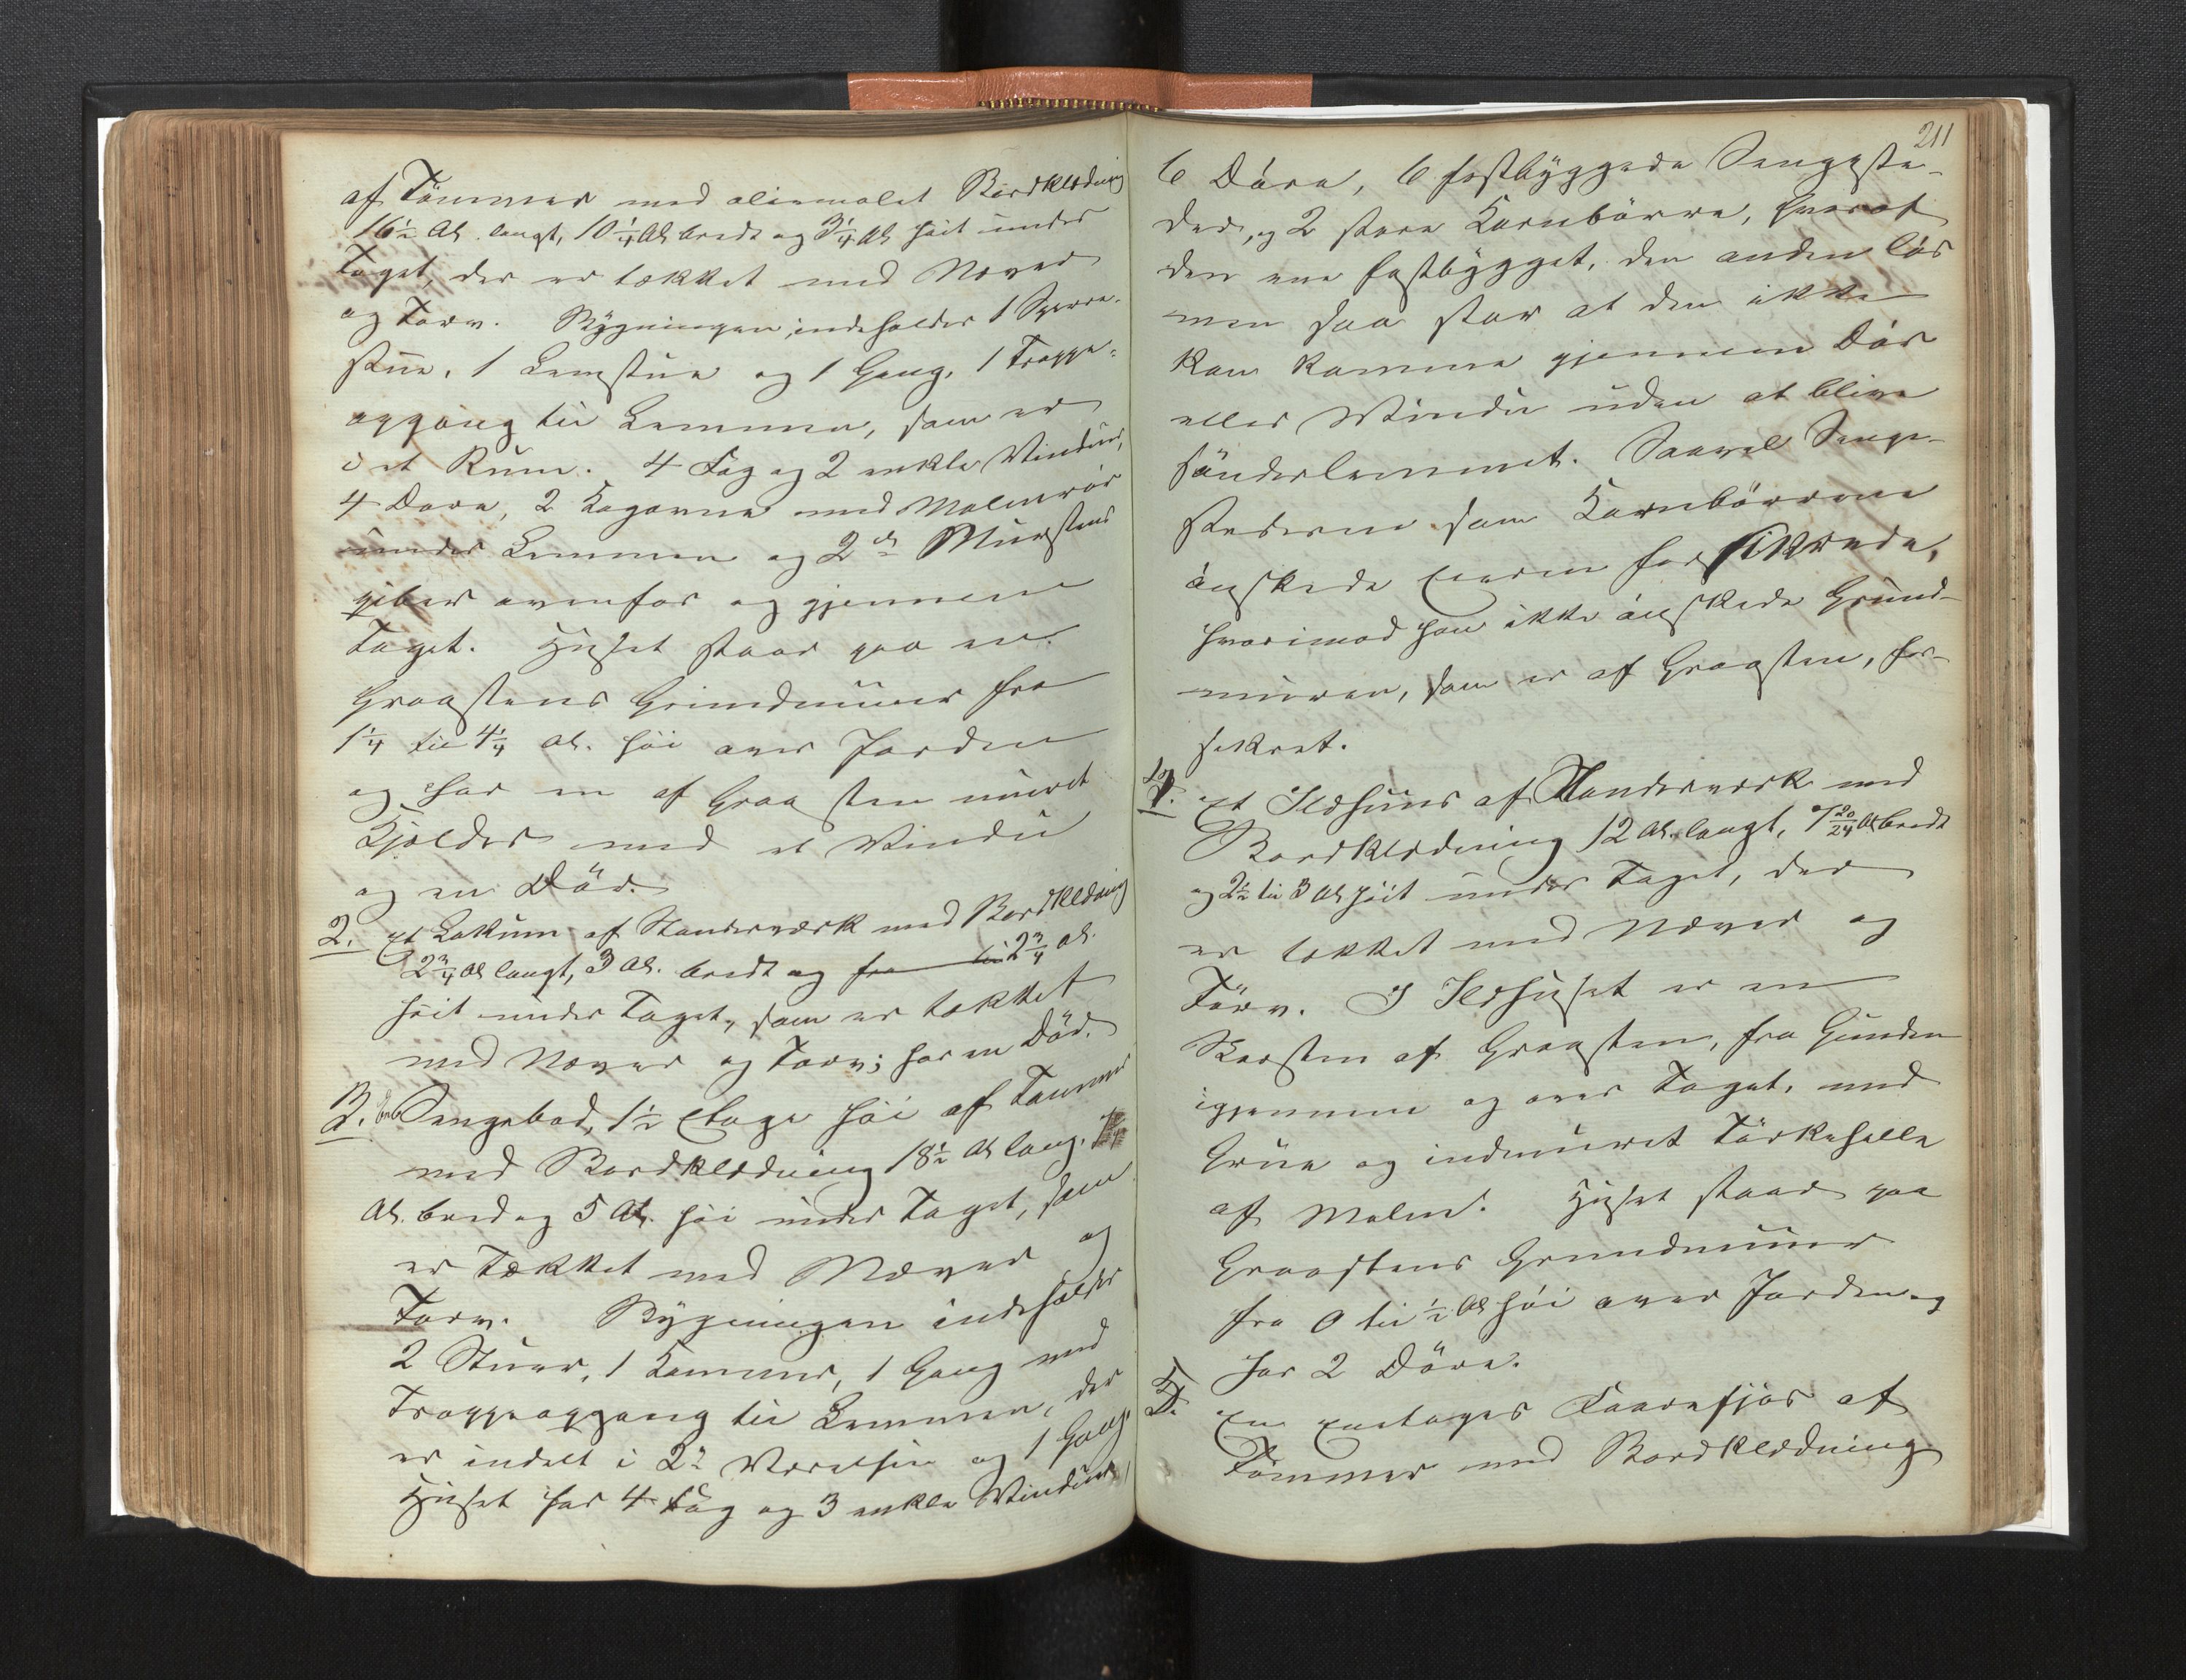 af Tömmer med oliemalet Bordklædning
16½ Al. langt, 10¼ Al bredt og 3¼ Al höit under
Taget, der er tækket med Næver
og Torv. Bygningen indeholder 1 Sperre-
stue, 1 Lemstue og 1 Gang, 1 Trappe-
opgang til Lemmen, som er
i et Rum. 4 Fag og 2 enkle Vinduer,
4 Döre, 2 Kogovne med Malmrör
under Lemmen og 2de Murstens
piber ovenfor og gjennem
Taget. Huset staar paa en
Graastens Grundmuur fra
1¼ til 4¼ Al. höi over Jorden
og har en af Graasten muret
Kjelder med et Vindu
og en Dör.
2. Et Lokum af Standerværk med Bordklædning
2¾ Al langt, 3 Al. bredt og fra til 2¾ Al.
höit under Taget, som er tækket
med Næver og Torv; har en Dör.
3. Sengebod, 1½ Etage höi af Tømmer
med Bordklædning 18½ Al lang,
Al. bred og 5 Al. höi under Taget, som
er Tækket med Næver og
Torv. Bygningen indeholder
2 Stuer, 1 Kammer, 1 Gang med
Trappeopgang til Lemmen, der
er indelt i 2de Værelser og 1 Gang.
Huset har 4 Fag og 3 enkle Vinduer,
211
6 Döre, 6 fastbyggede Sengeste-
der, og 2 store Kornbörer, hvoraf
den ene fastbygget, den anden lös
men saa stor at den ikke
kan komme gjennem Dör
eller Vindu uden at blive
sönderlemmet. Saavel Senge-
stederne som Kornbörerne
önskede Eieren forsikrede,
hvorimod han ikke önskede Grund-
muren, som er af Graasten, for-
sikret.
4. Et Ildhuus af Standerværk med
Bordklædning 12 Al. langt, 7 20/24 Al bredt
og 2½ til 3 Al höit under Taget, der
er tækket med Næver og
Törv. I Ildhuset er en
Skorsten af Graasten, fra Gunden
igjennem og over Taget, med
Grue og indmuret Törkehelle
af Malm. Huset staar paa
Graastens Grundmuur
fra 0 til ½ Al höi over Jorden og
har 2 Döre.
5. En Enetages Faarefjös af
Tömmer med Bordklædning